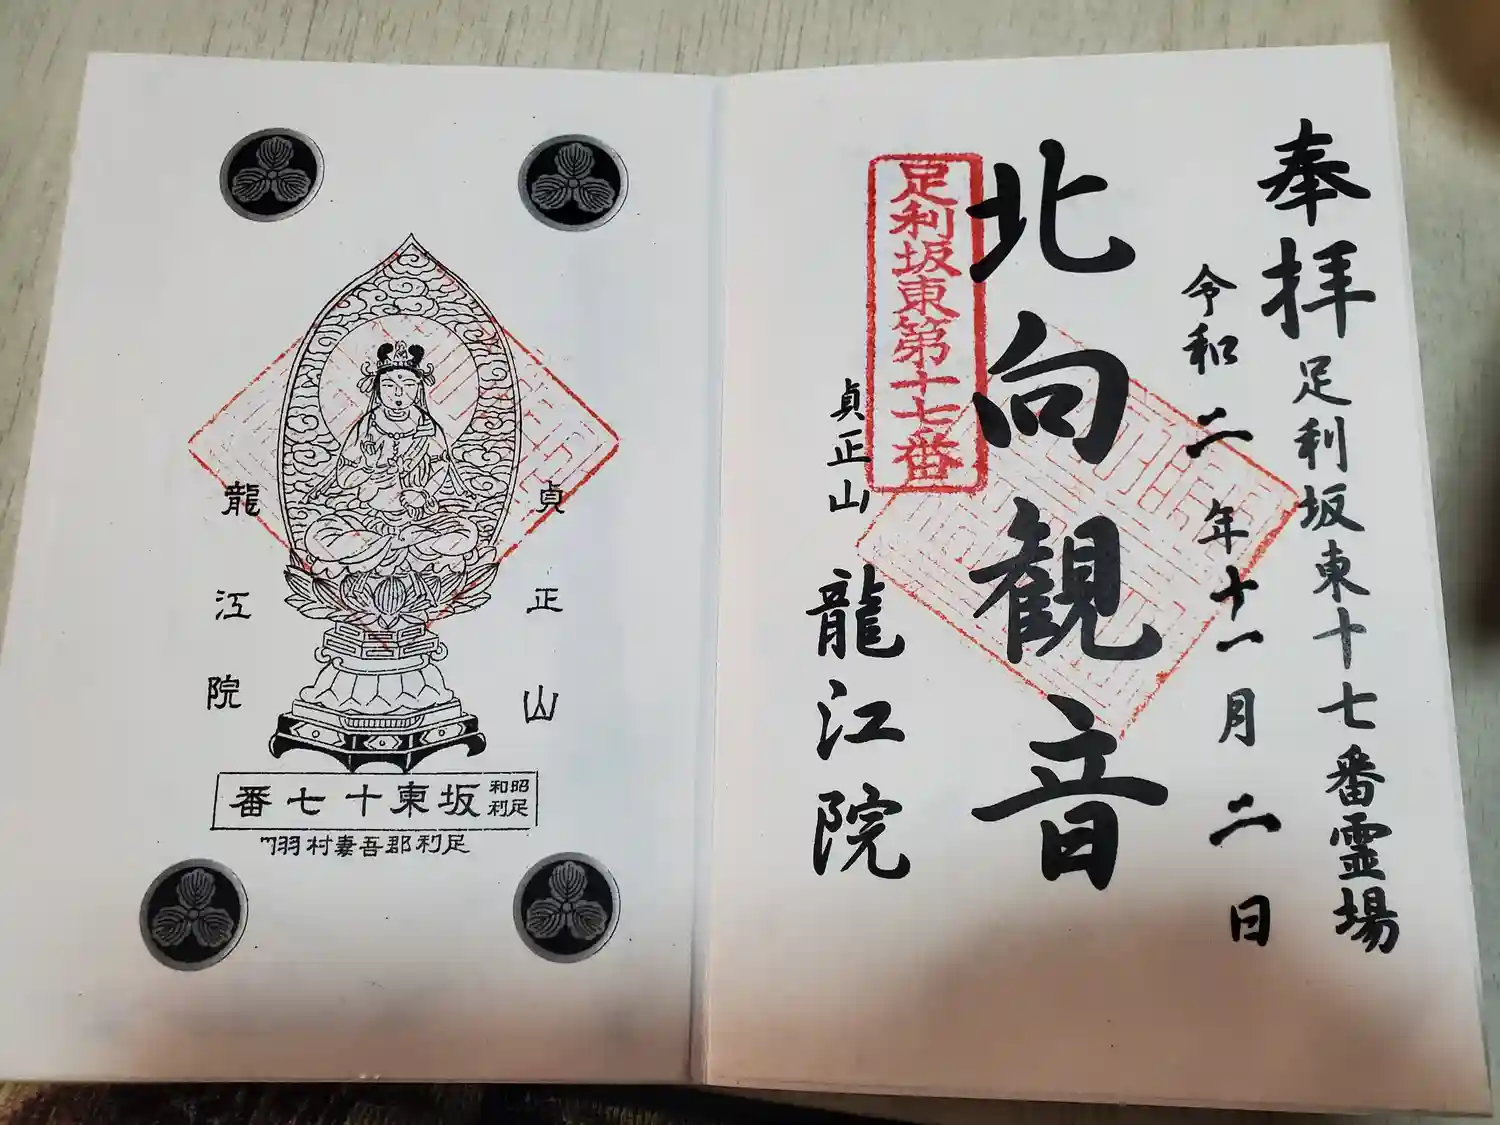 奉拝
足利坂東十七番霊場
令和二年十一月二日
北向観音
足利坂東第十七番
貞正山
龍江院
貞正山
龍江院
昭和足利
坂東十七番
足利郡吾妻村羽刈